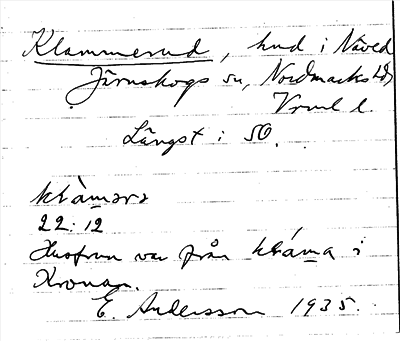 Klammerud, hmd i Näved
Järnskogs sn, Nordmarks hd,
Vrml l.
Längst i SO.
klàmərə
22:12
Husfrun var från kláma i
Kronan.
E. Andersson 1935.